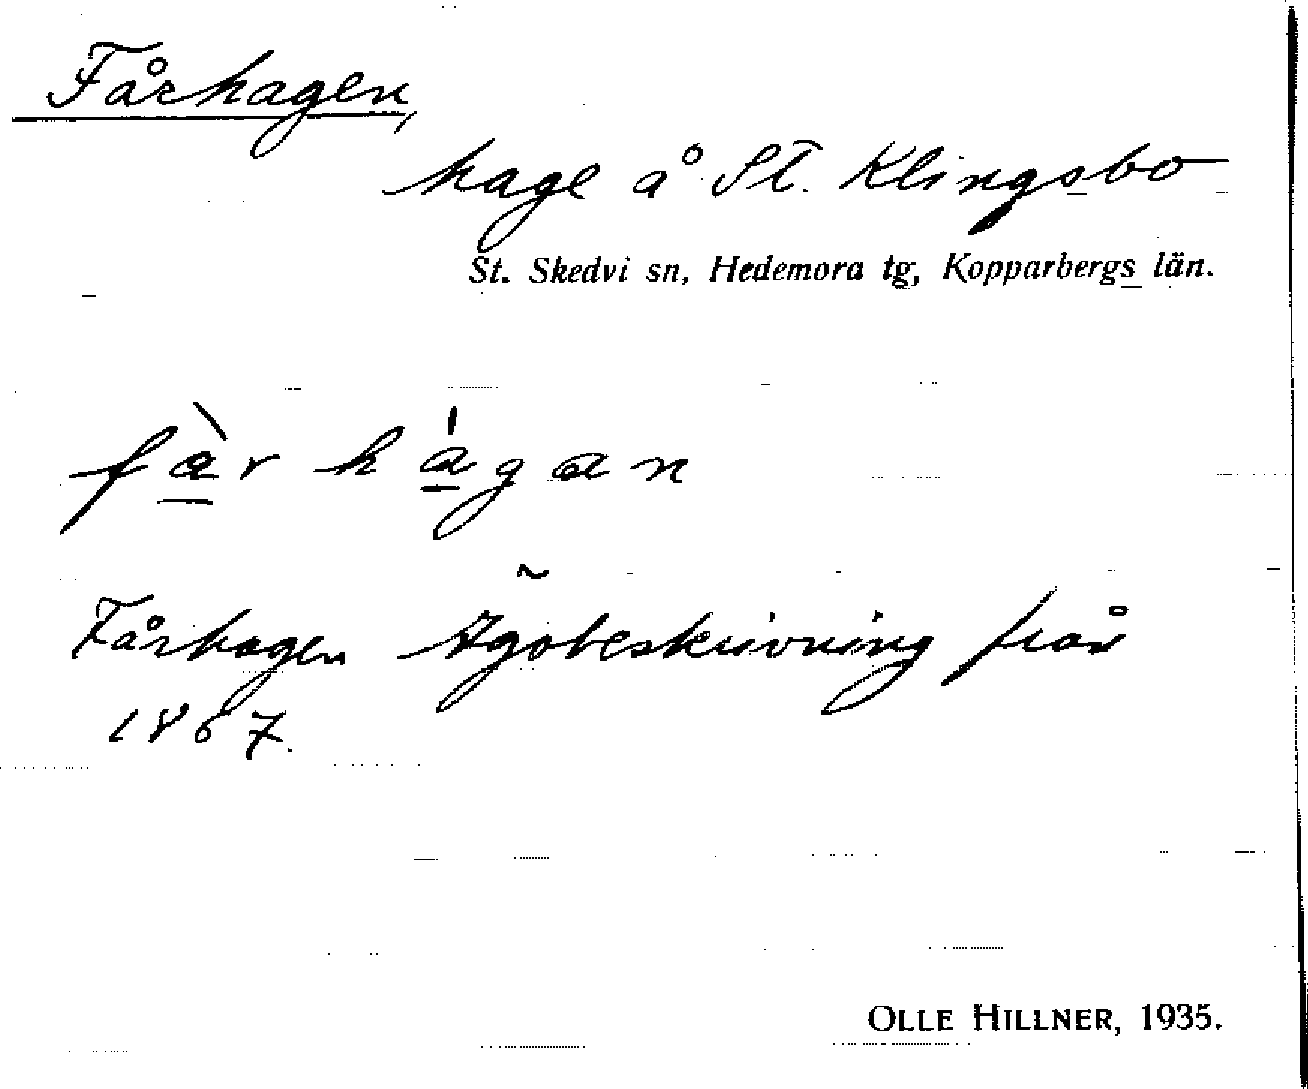 Fårhagen,
hage å St. Klingsbo
St. Skedvi sn, Hedemora tg, Kopparbergs län.
fàr hágan
Fårhagen Ägobeskrivning från
1867.
OLLE HILLNER, 1935.